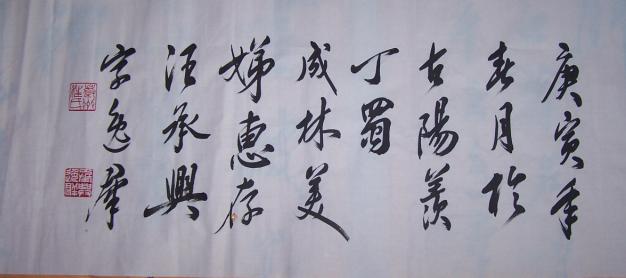 庚寅年
春月於
古陽羨
丁蜀
成林美
娣惠存
汪承興
字逸羣